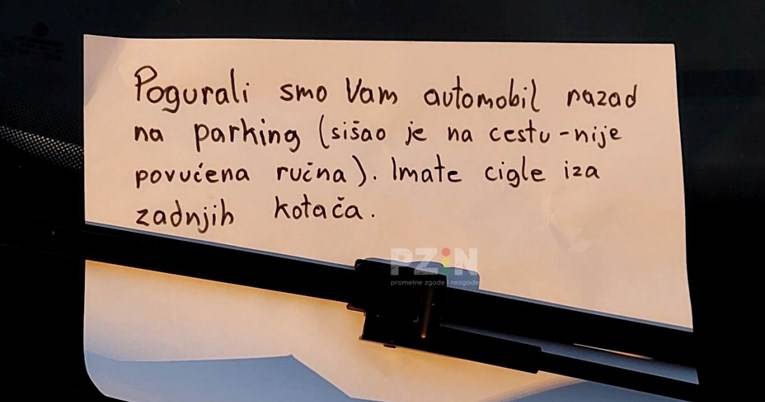 Pogurali smo Vam automobil nazad
na parking (sišao je na cestu-nije
povučena ručna). Imate cigle iza
zadnjih kotača.
PZiN
prometne zgode i nezgode